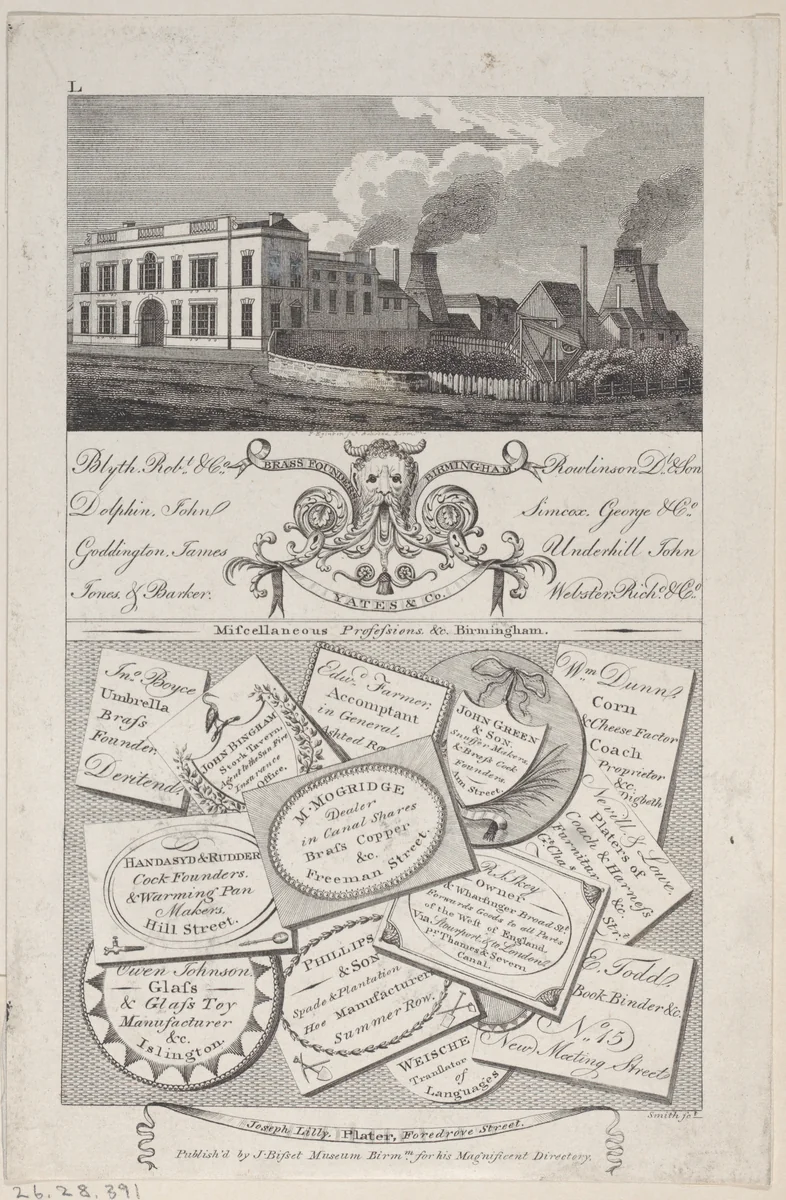 L
Blyth. Robt. & Co.
Dolphin. John
Goddington. James
Jones. & Barker.
BRASS FOUNDERS BIRMINGHAM.
YATES & Co.
Rowlinson Dl. & Son
Simcox. George & Co.
Underhill John
Webster. Richd. & Co.
Miſcellaneous Profeſsions. &c. Birmingham.
Jno. Boyce
Umbrella
Braſs
Founder.
Deritend.
JOHN BINGHAM
Stork Tavern.
Agent to the Sun Fire
Insurance
Office.
Edwd. Farmer.
Accomptant
in General.
Ashted
JOHN GREEN
& SON.
Snuffer Makers.
& Braſs Cock
Founders.
Ann Street.
Wm. Dunn.
Corn
& Cheese Factor
Coach
Proprietor
&c.
Digbeth
M. MOGRIDGE
Dealer
in Canal Shares
Braſs Copper
&c.
Freeman Street.
Nevill. & Lowe.
Platers of
Coach & Harneſs
Furniture &c.
Gt. Chas. Strt.
HANDASYD & RUDDER
Cock Founders.
& Warming Pan
Makers.
Hill Street.
R. Skey
Owner
& Wharfinger Broad St.
Forwards Goods to all Parts
of the West of England.
Via Stourport, & to London
pr. Thames & Severn
Canal.
Owen Johnson.
Glaſs
& Glaſs Toy
Manufacturer
&c.
Islington.
PHILLIPS
& SON
Spade & Plantation
Hoe Manufacturers
Summer Row.
E. Todd.
Book Binder &c.
No. 15
New Meeting Street
WEISCHE
Translator
of
Languages
Smith sct.
Joseph Lilly. Plater, Foredrove Street.
Publish'd by J. Biſset Museum Birmm. for his Magnificent Directory.
26.28.391